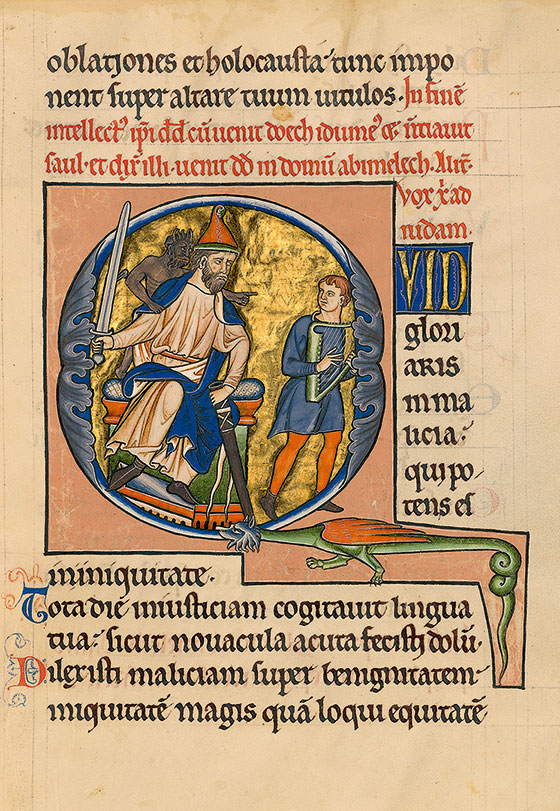 oblationes et holocausta: tunc impo
nent super altare tuum uitulos. In finē
intellect' ip̄i d̄d cū uenit doech idume' & n̄tiauit
saul. et dix̄ illi. uenit d̄d in domū abimelech.
vox x̄ ad
iudam.
QUID
glori
aris
in ma
licia:
qui po
tens es
in iniquitate.
Tota diē iniusticiam cogitauit lingua
tua: sicut nouacula acuta fecisti dolū.
Dilexisti maliciam super benignitatem
iniquitatē magis quā loqui equitatē